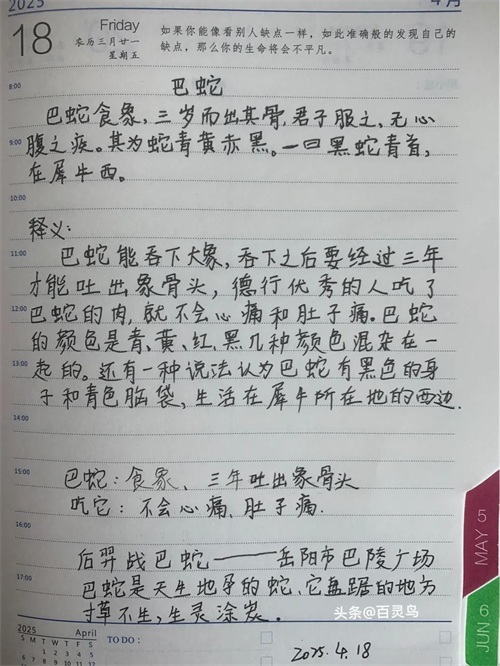 2025
4月
18
Friday
农历三月廿一
星期五
如果你能像看别人缺点一样，如此准确般的发现自己的
缺点，那么你的生命将会不平凡。
8:00
巴蛇
巴蛇食象，三岁而出其骨，君子服之，无心
9:00
腹之疾。其为蛇青黄赤黑。一曰黑蛇青首，
在犀牛西。
10:00
释义：
11:00
巴蛇能吞下大象，吞下之后要经过三年
才能吐出象骨头，德行优秀的人吃了
12:00
巴蛇的肉，就不会心痛和肚子痛。巴蛇
的颜色是青、黄、红、黑几种颜色混杂在一
13:00
起的。还有一种说法认为巴蛇有黑色的身
子和青色脑袋，生活在犀牛所在地的西边.
15:00
巴蛇：食象、三年吐出象骨头
吃它：不会心痛、肚子痛.
16:00
后羿战巴蛇——岳阳市巴陵广场
17:00
巴蛇是天生地孕的蛇，它盘踞的地方
寸草不生，生灵涂炭。
头条@百灵鸟
2025 April
S M T W T F S
1 2 3 4 5
TO DO :
2025.4.18
MAY 5
JUN 6